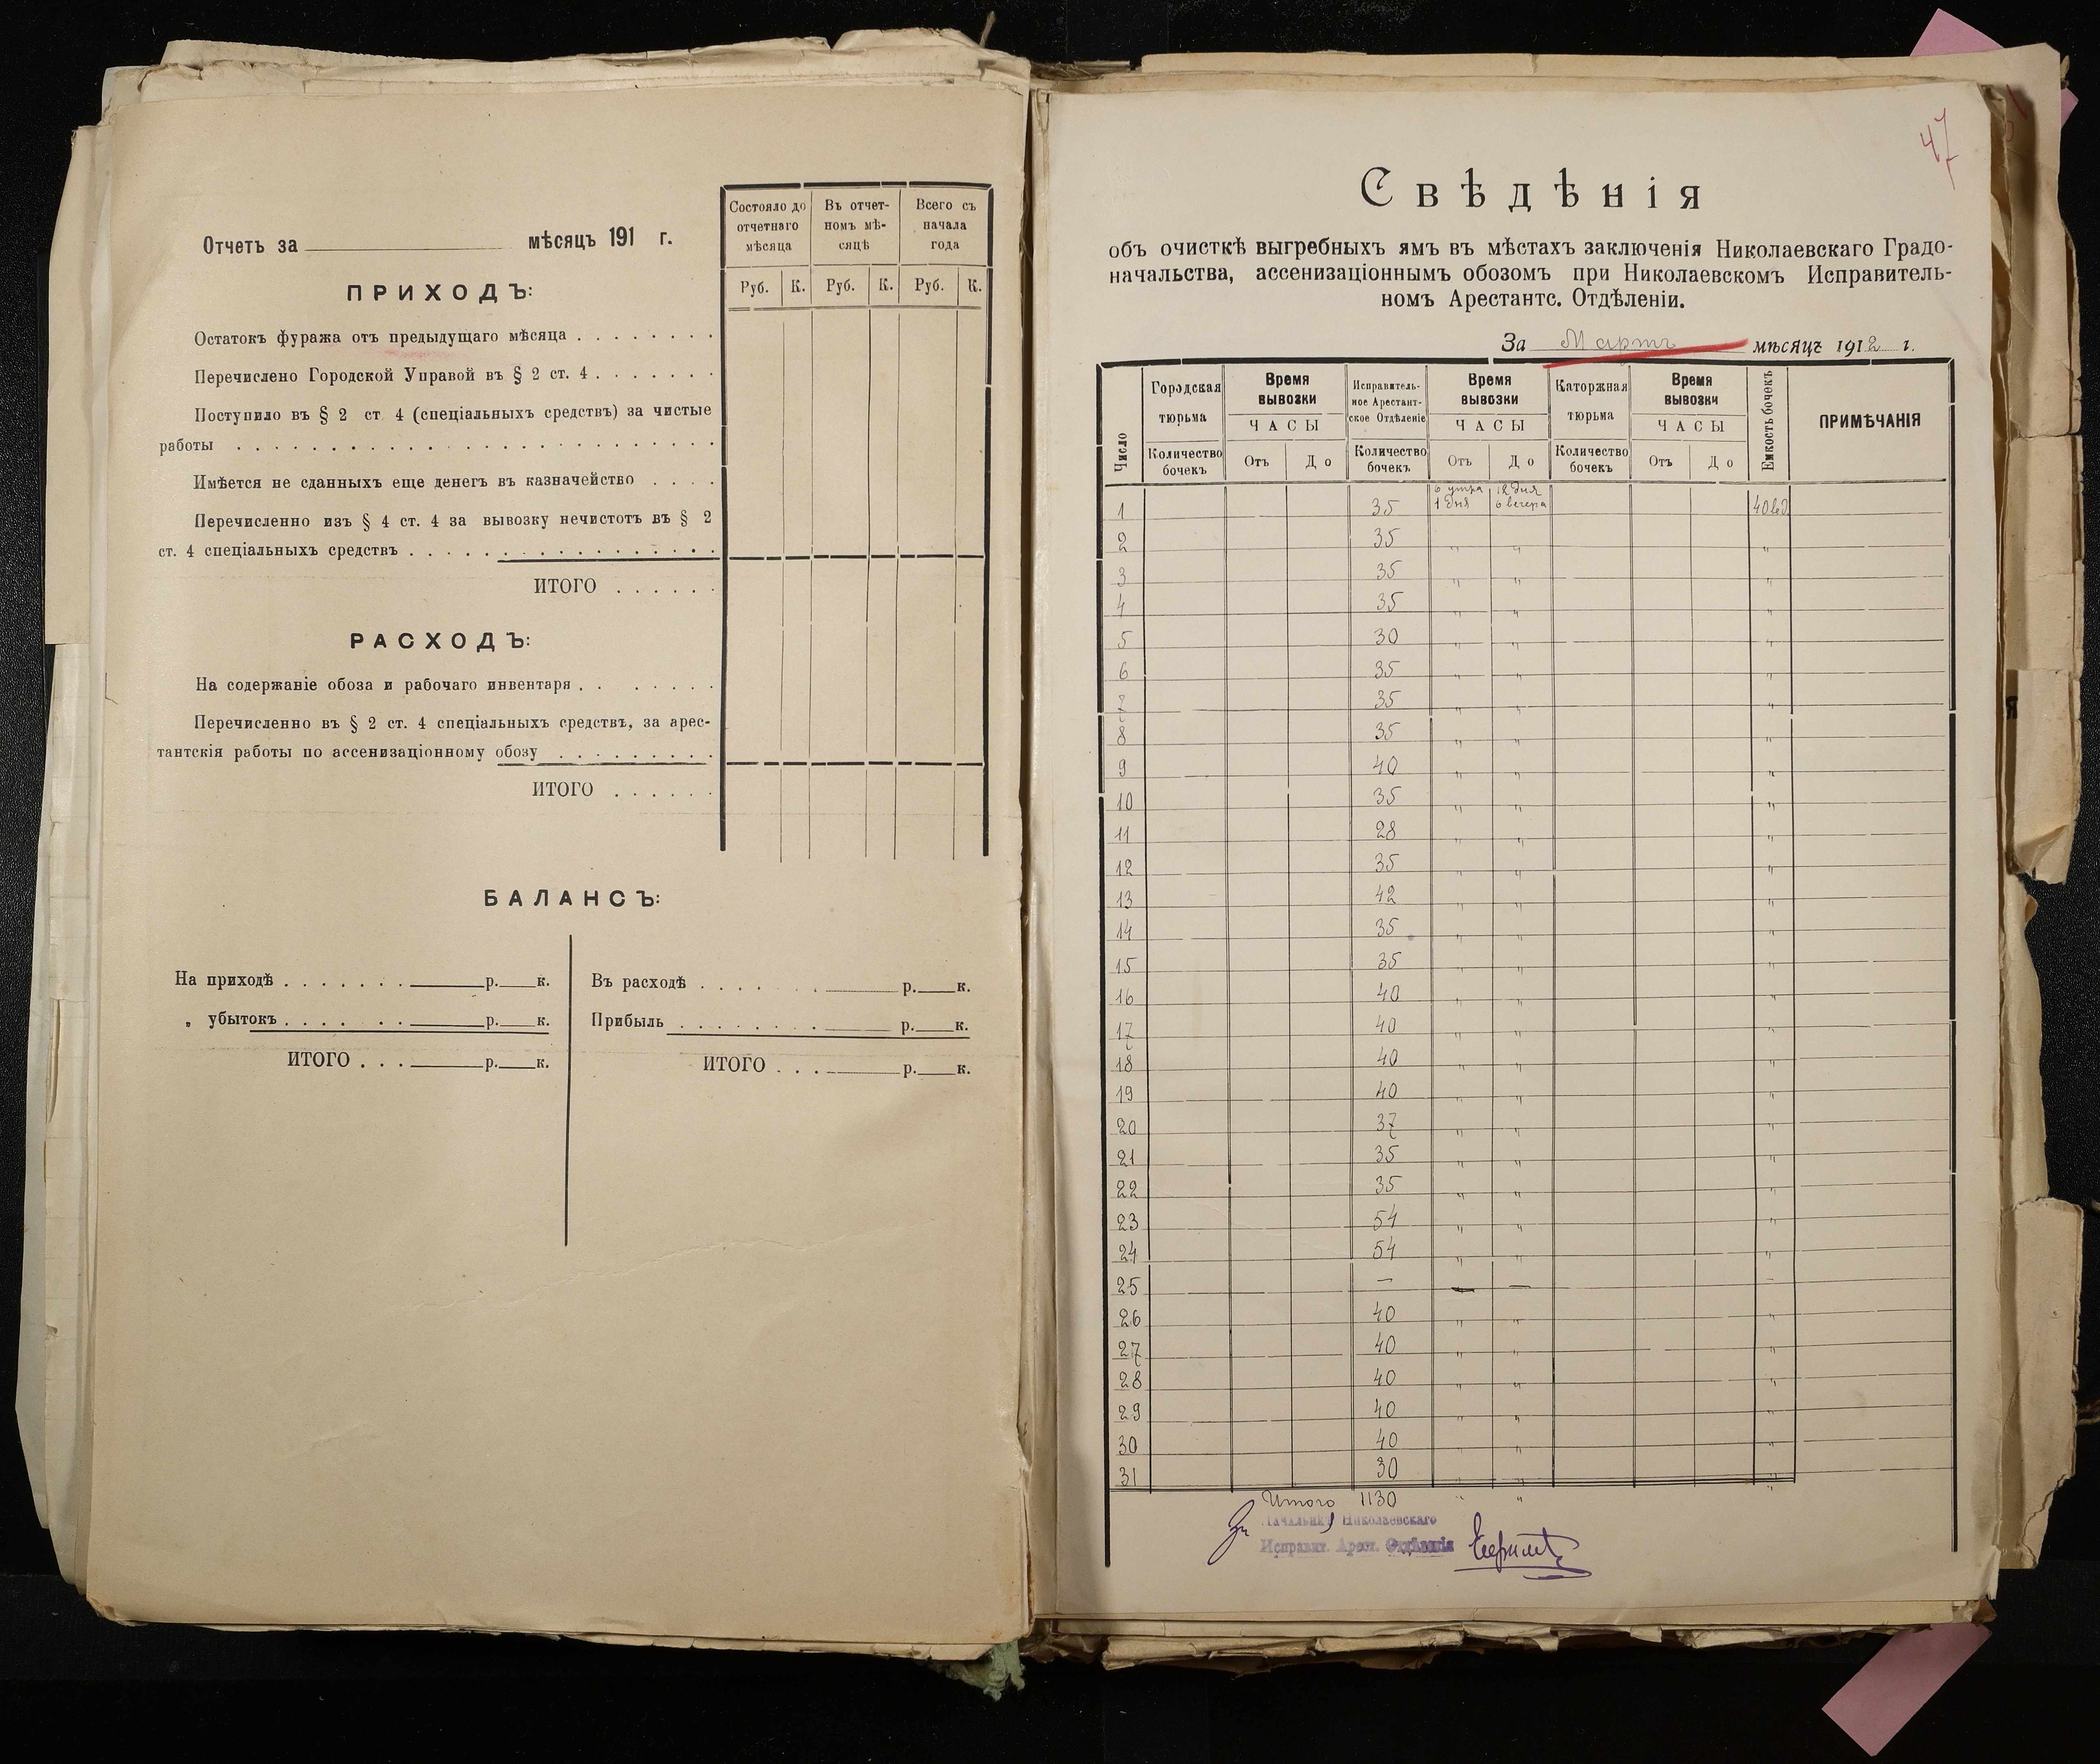 Отчетъ за мѣсяцъ 191 г.
Состояло до отчетнаго мѣсяца
Въ отчетномъ мѣсяцѣ
Всего съ начала года
Руб. К. Руб. К. Руб. К.
ПРИХОДЪ:
Остатокъ фуража отъ предыдущаго мѣсяца . . . . . . . .
Перечислено Городской Управой въ § 2 ст. 4 . . . . . . .
Поступило въ § 2 ст 4 (спеціальныхъ средствъ) за чистые
работы . . . . . . . . . . . . . . . . . . . .
Имѣется не сданныхъ еще денегъ въ казначейство . . . .
Перечисленно изъ § 4 ст. 4 за вывозку нечистотъ въ § 2
ст. 4 спеціальныхъ средствъ . . . . . . . . . . . . . .
ИТОГО . . . . . .
РАСХОДЪ:
На содержаніе обоза и рабочаго инвентаря . . . . . . .
Перечисленно въ § 2 ст. 4 спеціальныхъ средствъ, за арес-
тантскія работы по ассенизаціонному обозу . . . . . . . .
ИТОГО . . . . . .
БАЛАНСЪ:
На приходѣ . . . . . . . р. к.
„ убытокъ . . . . . . р. к.
ИТОГО . . . р. к.
Въ расходѣ . . . . . . . р. к.
Прибыль . . . . . . . . р. к.
ИТОГО . . . р. к.
47
Свѣдѣнія
объ очисткѣ выгребныхъ ямъ въ мѣстахъ заключенія Николаевскаго Градо-
начальства, ассенизаціоннымъ обозомъ при Николаевскомъ Исправитель-
номъ Арестантс. Отдѣленіи.
За Мартъ мѣсяцъ 1912 г.
Число
Городская тюрьма
Количество бочекъ
Время вывозки
ЧАСЫ
Отъ До
Исправительное Арестантское Отдѣленіе
Количество бочекъ
Время вывозки
ЧАСЫ
Отъ До
Каторжная тюрьма
Количество бочекъ
Время вывозки
ЧАСЫ
Отъ До
Емкость бочекъ
ПРИМѢЧАНІЯ
6 утра 12 дня
1 35 1 дня 6 вечера 40 вед
2 35 " " "
3 35 " " "
4 35 " " "
5 30 " " "
6 35 " " "
7 35 " " "
8 35 " " "
9 40 " " "
10 35 " " "
11 28 " " "
12 35 " " "
13 42 " " "
14 35 " " "
15 35 " " "
16 40 " " "
17 40 " " "
18 40 " " "
19 40 " " "
20 37 " " "
21 35 " " "
22 35 " " "
23 54 " " "
24 54 " " "
25 — — — —
26 40 " " "
27 40 " " "
28 40 " " "
29 40 " " "
30 40 " " "
31 30 " " "
Итого 1130 " "
За Начальник Николаевскаго
Исправит. Арест. Отдѣленія